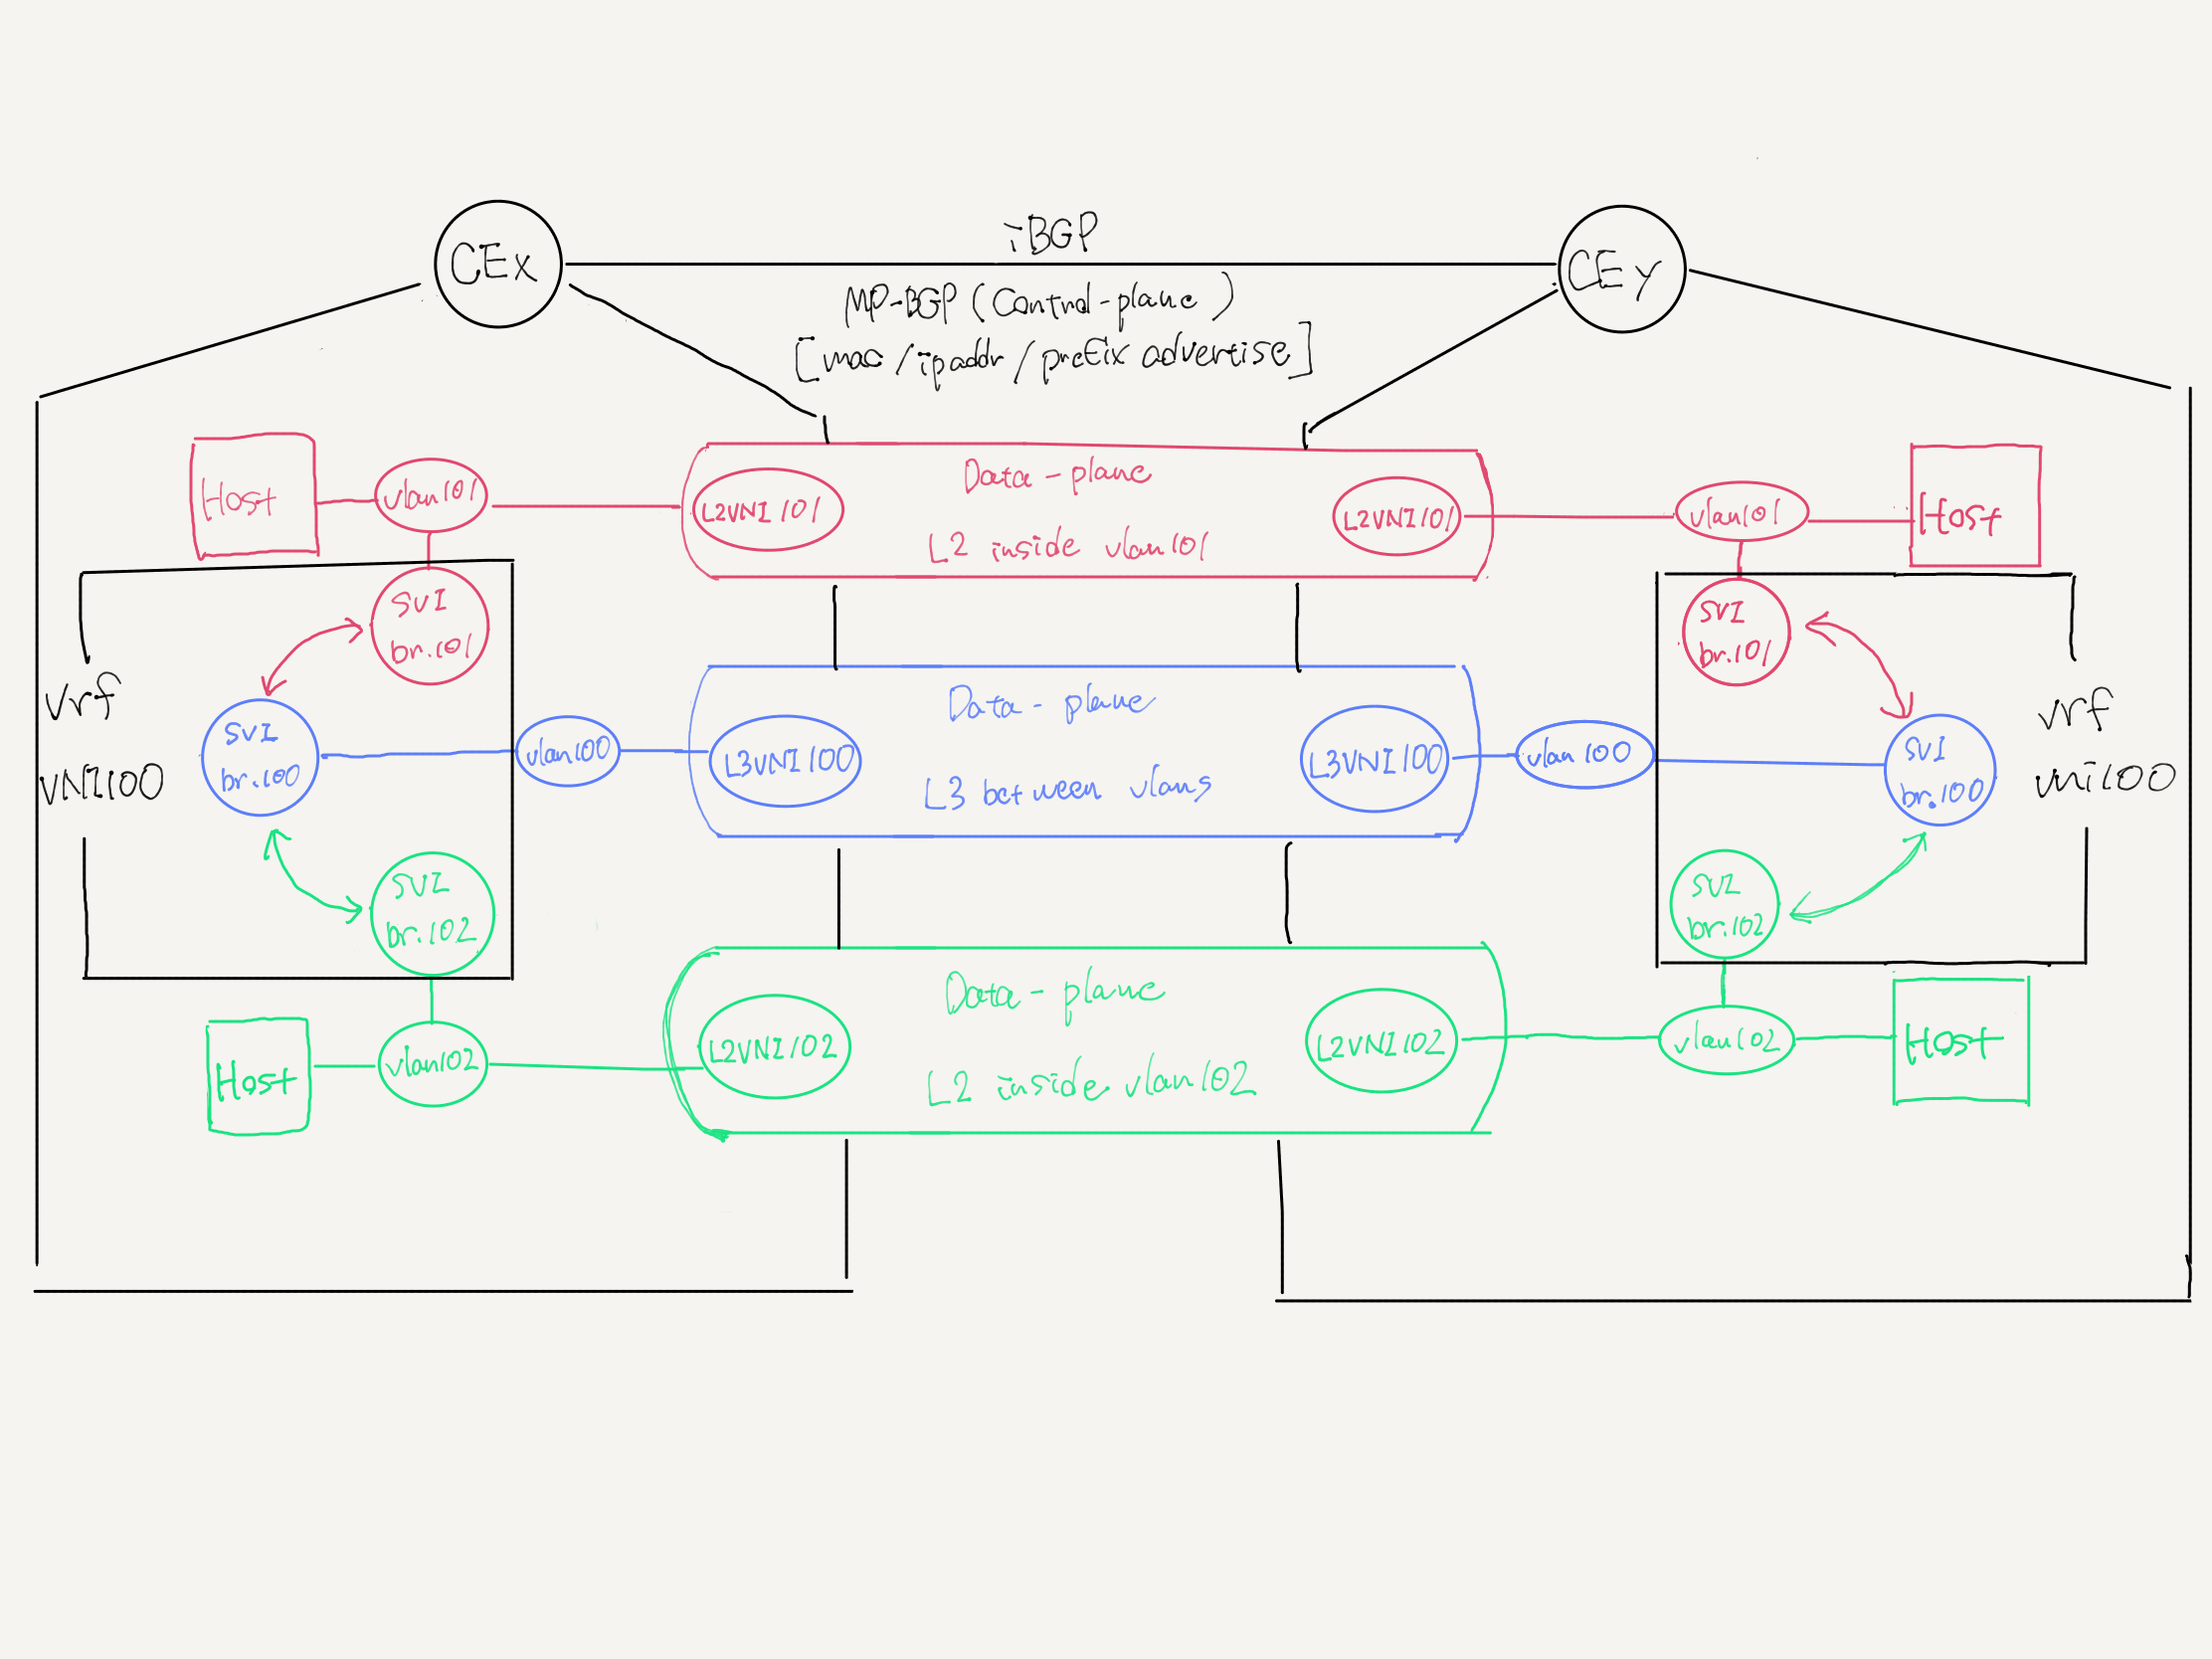 CEx
iBGP
CEy
MP-BGP (Control-plane)
[mac/ipaddr/prefix advertise]
Host
vlan101
L2VNI101
Data-plane
L2 inside vlan101
L2VNI101
vlan101
Host
SVI
br.101
SVI
br.101
vrf
VNI100
SVI
br.100
vlan100
L3VNI100
Data-plane
L3 between vlans
L3VNI100
vlan100
SVI
br.100
vrf
vni100
SVI
br.102
SVI
br.102
Host
vlan102
L2VNI102
Data-plane
L2 inside vlan102
L2VNI102
vlan102
Host